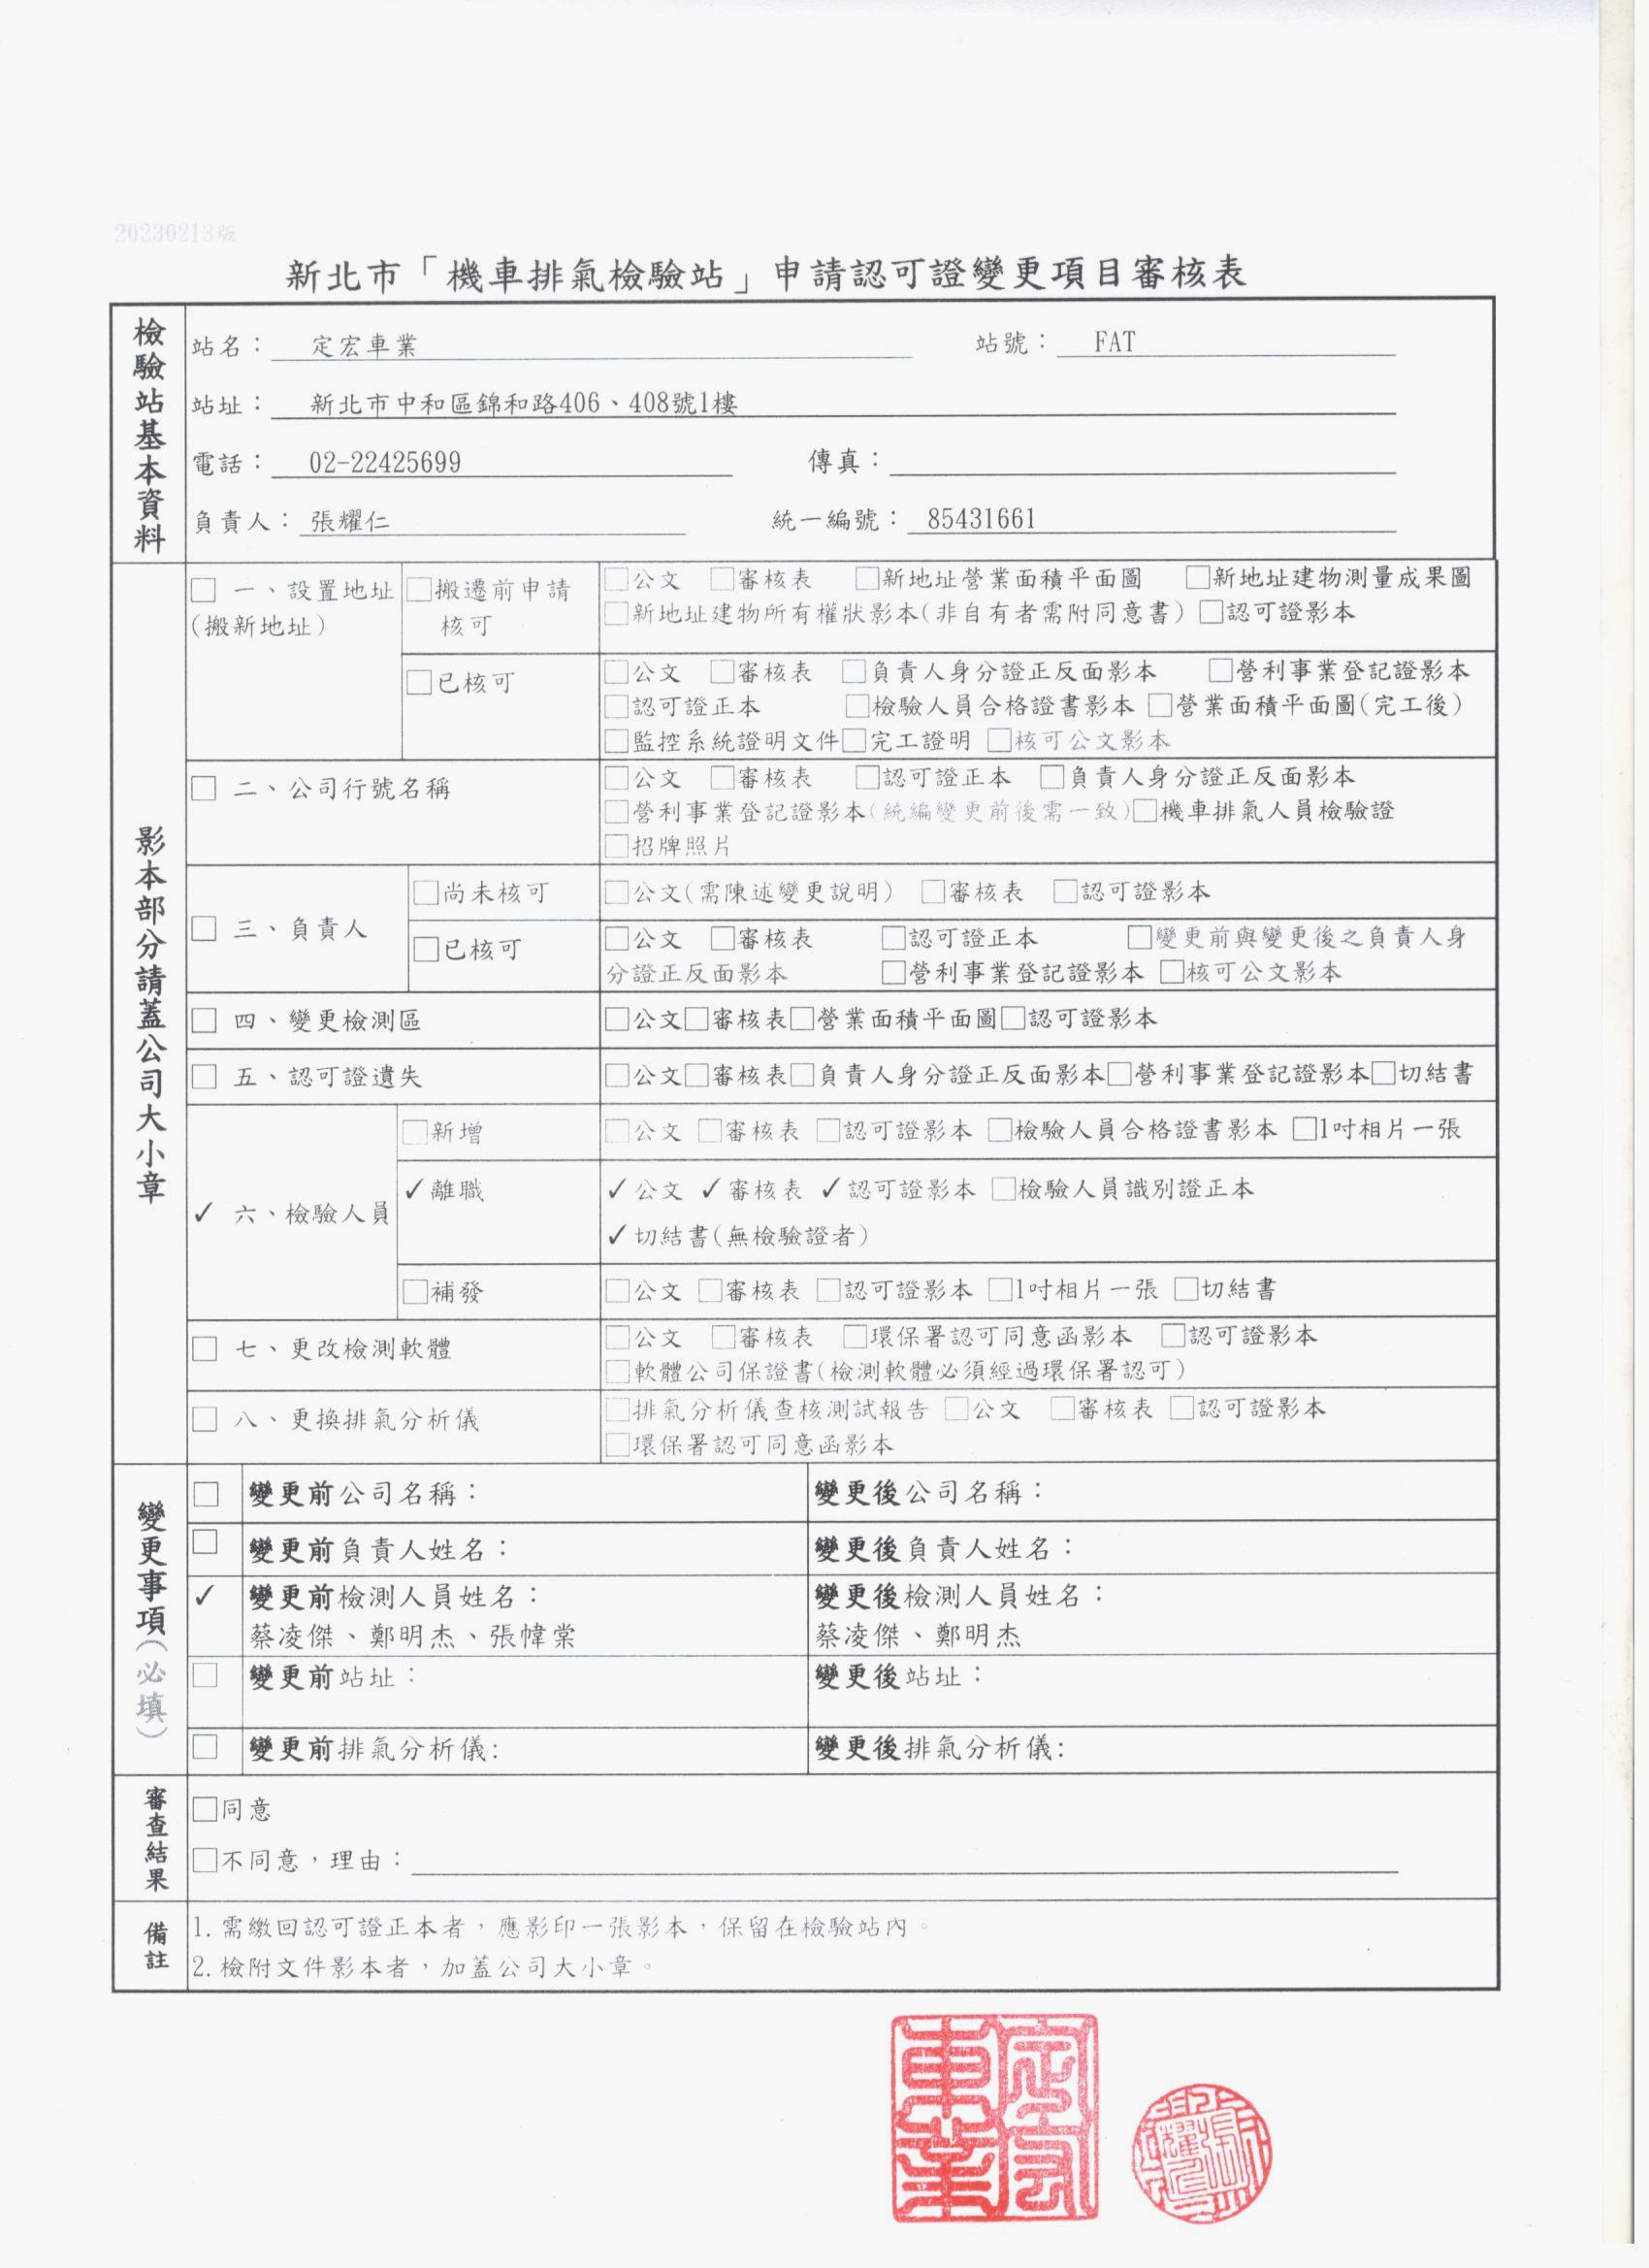 20230213版
新北市「機車排氣檢驗站」申請認可證變更項目審核表
檢驗站基本資料
站名： 定宏車業 站號： FAT
站址： 新北市中和區錦和路406、408號1樓
電話： 02-22425699 傳真：
負責人： 張耀仁 統一編號： 85431661
影本部分請蓋公司大小章
□ 一、設置地址
(搬新地址)
□搬遷前申請
核可
□公文 □審核表 □新地址營業面積平面圖 □新地址建物測量成果圖
□新地址建物所有權狀影本(非自有者需附同意書) □認可證影本
□已核可
□公文 □審核表 □負責人身分證正反面影本 □營利事業登記證影本
□認可證正本 □檢驗人員合格證書影本 □營業面積平面圖(完工後)
□監控系統證明文件□完工證明 □核可公文影本
□ 二、公司行號名稱
□公文 □審核表 □認可證正本 □負責人身分證正反面影本
□營利事業登記證影本(統編變更前後需一致)□機車排氣人員檢驗證
□招牌照片
□ 三、負責人
□尚未核可
□公文(需陳述變更說明) □審核表 □認可證影本
□已核可
□公文 □審核表 □認可證正本 □變更前與變更後之負責人身
分證正反面影本 □營利事業登記證影本 □核可公文影本
□ 四、變更檢測區
□公文□審核表□營業面積平面圖□認可證影本
□ 五、認可證遺失
□公文□審核表□負責人身分證正反面影本□營利事業登記證影本□切結書
✓ 六、檢驗人員
□新增
□公文 □審核表 □認可證影本 □檢驗人員合格證書影本 □1吋相片一張
✓離職
✓公文 ✓審核表 ✓認可證影本 □檢驗人員識別證正本
✓切結書(無檢驗證者)
□補發
□公文 □審核表 □認可證影本 □1吋相片一張 □切結書
□ 七、更改檢測軟體
□公文 □審核表 □環保署認可同意函影本 □認可證影本
□軟體公司保證書(檢測軟體必須經過環保署認可)
□ 八、更換排氣分析儀
□排氣分析儀查核測試報告 □公文 □審核表 □認可證影本
□環保署認可同意函影本
變更事項(必填)
□ 變更前公司名稱： 變更後公司名稱：
□ 變更前負責人姓名： 變更後負責人姓名：
✓ 變更前檢測人員姓名： 變更後檢測人員姓名：
蔡凌傑、鄭明杰、張幃棠 蔡凌傑、鄭明杰
□ 變更前站址： 變更後站址：
□ 變更前排氣分析儀: 變更後排氣分析儀:
審查結果
□同意
□不同意，理由：
備註
1.需繳回認可證正本者，應影印一張影本，保留在檢驗站內。
2.檢附文件影本者，加蓋公司大小章。
定宏車業